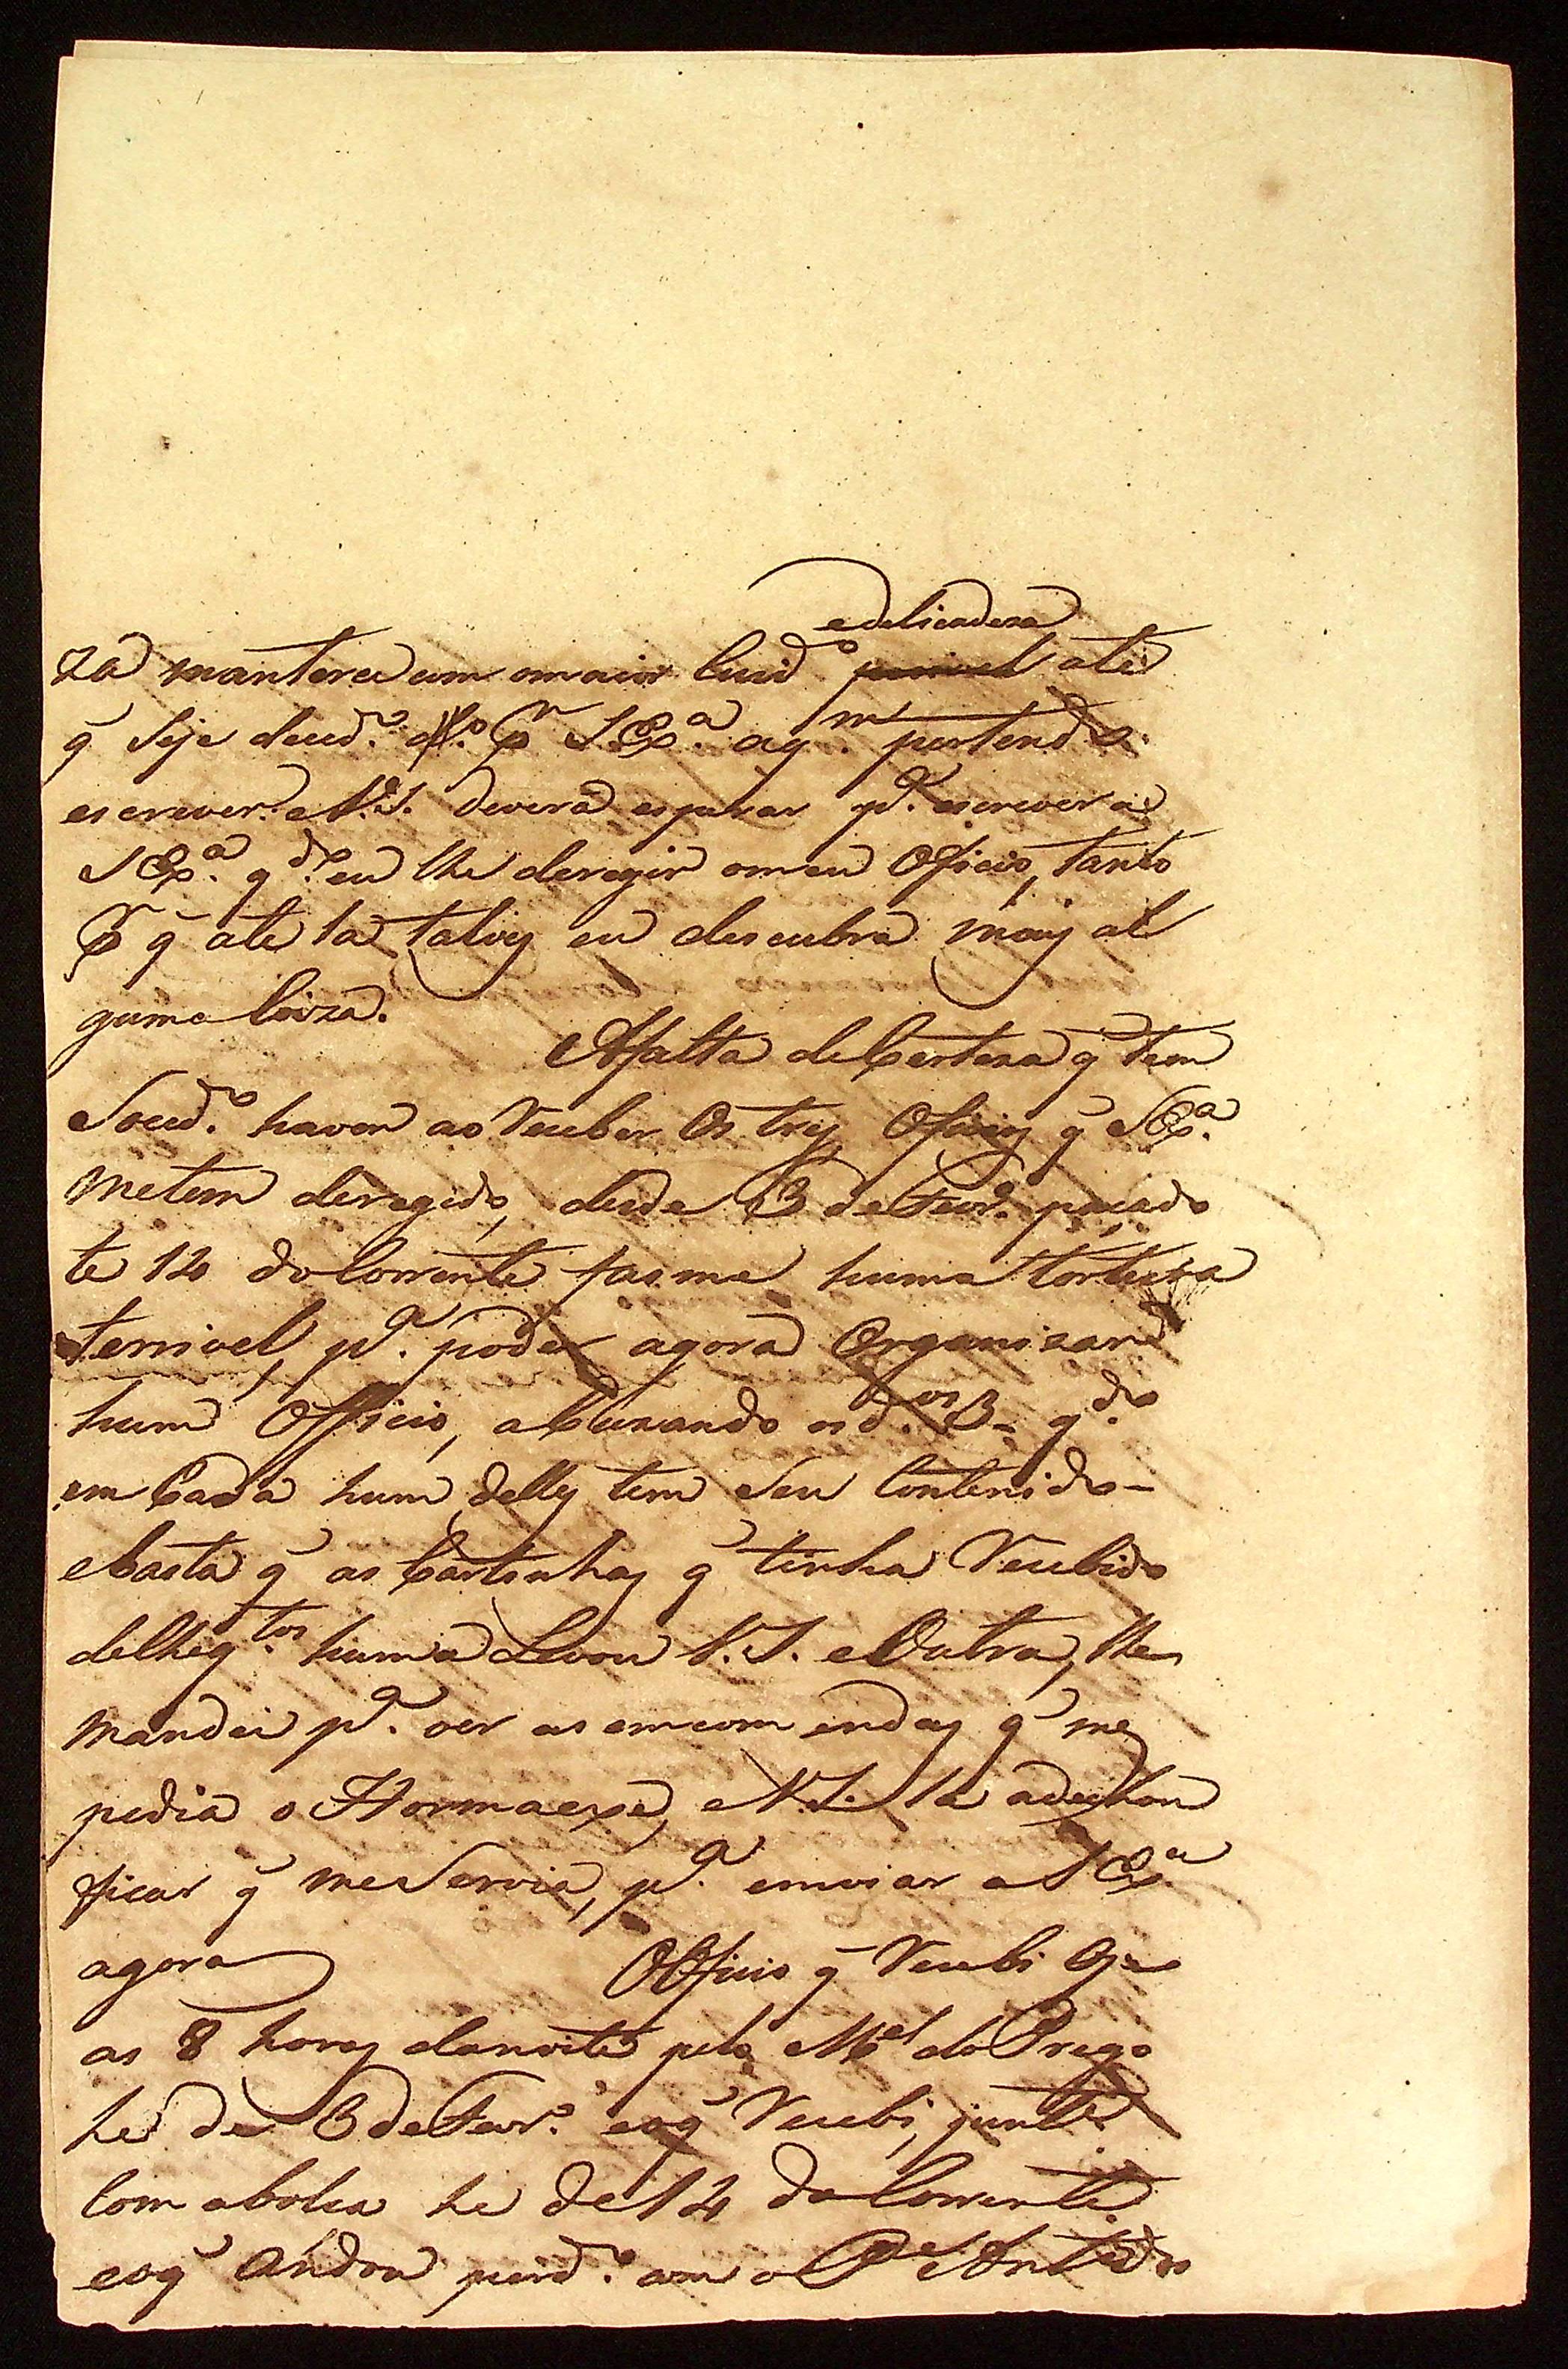 edelicadeza
za manterei com omaior Cuid.º atê
q̃ Seje decid.º p.r S. Ex.ª aq.m pertendo
escrever: e V. S. deverá esperar p.ª escrever a
S Ex.ª q.do eu lhe deregir omeu Oficio, tanto
p.r q̃ ate la talves eu descubra mais al
guma Coiza.
Afalta deCerteza q̃ tem
Soced.º haver ao Receber Os tres Oficios q̃ S Ex.ª
metem deregido, desde 3 deFevr.º paçado
te 14 doCorrente fasme huma tortura
terrivel, p.ª poder agora Organizar
hum Officio, aCuzando os d.os 3 - q.do
em Cada hum delles tem Seu Contenido -
ebasta q̃ as Cartinhas q̃ tinha Recebido
huma Levou V. S. eOutra, lhe
mandei p.ª ver as emcomendas q̃ me
pedia o Hormaexe, e V. S. la adeichou
ficar q̃ meServia, p.ª emviar a S Ex.ª
agora OOfficio q̃ Recebi Oje
as 8 horas danoite pelo M.el do Prego
he de 3 deFevr.º eoq̃ Recebi, junto
Com abolsa he de 14 doCorrente
eoq̃ Andou perd.º com o P.e Ant.º do